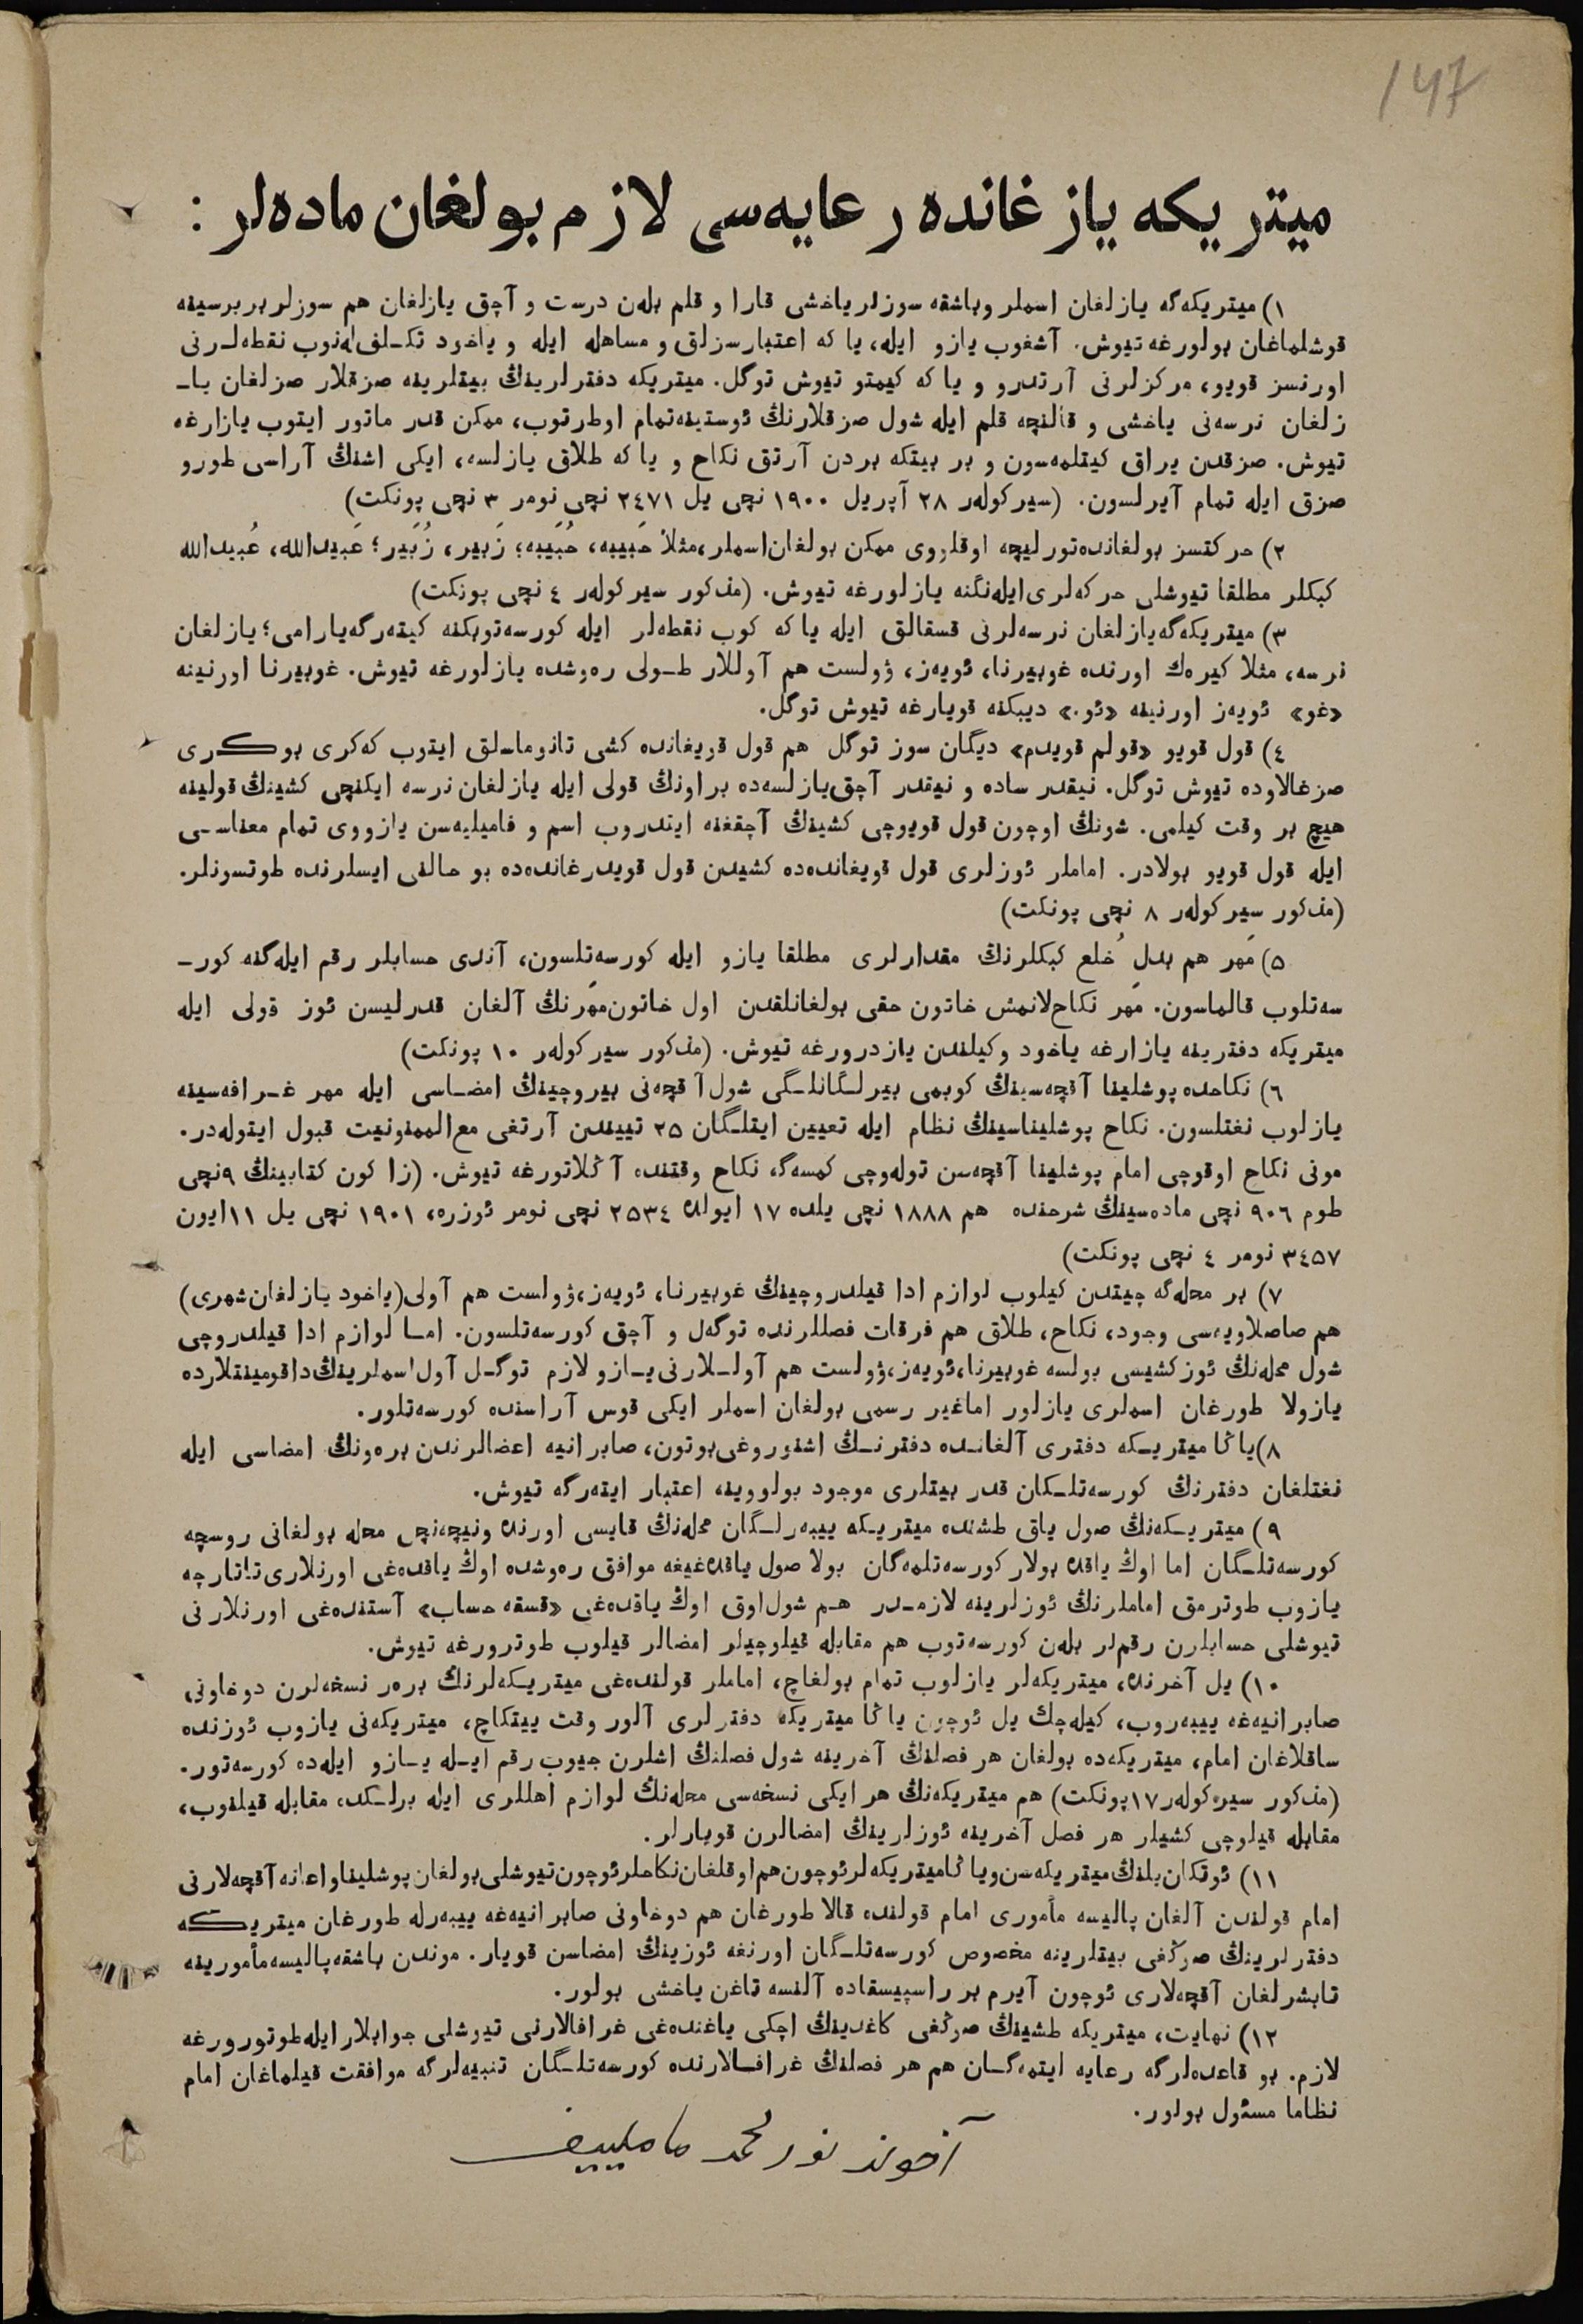 147
ميتريكه يازغانده رعايه‌سى لازم بولغان ماده‌لر :
١) ميتريكه‌گه يازلغان اسملر وباشقه سوزلر ياخشى قارا و قلم بله‌ن درست و آچق يازلغان هم سوزلر بربرسينه
قوشلماغان بولورغه تيوش. آشغوب يازو ايله، يا كه اعتبارسزلق و مساهله ايله و ياخود تكـلف‌له‌نوب نقطه‌لـرنى
اورنسز قويو، مركزلرنى آرتدرو و يا كه كيمتو تيوش توگل. ميتريكه دفترلرينڭ بيتلرينه صزقلار صزلغان يا-
زلغان نرسه‌نى ياخشى و قالنچه قلم ايله شول صزقلارنڭ ئوستينه‌تمام اوطرتوب، ممكن قدر ماتور ايتوب يازارغه
تيوش. صزقدن يراق كيتلمه‌سون و بر بيتكه بردن آرتق نكاح و يا كه طلاق يازلسه، ايكى اشنڭ آراسى طورو
صزق ايله تمام آيرلسون. (سيركوله‌ر ٢٨ آپريل ١٩٠٠ نچى يل ٢٤٧١ نچى نومر ٣ نچى پونكت)
٢) حركتسز بولغانده‌تورليچه اوقلووى ممكن بولغان‌اسملر،مثلاً حَبيبه، حُبَيبه؛ زَبير، زُبَير؛ عَبيدالله، عُبيدالله
كبكلر مطلقا تيوشلى حركه‌لرى‌ايله‌نگنه يازلورغه تيوش. (مذكور سيركوله‌ر ٤ نچى پونكت)
٣) ميتريكه‌گه‌يازلغان نرسه‌لرنى قسقالق ايله يا كه كوب نقطه‌لر ايله كورسه‌توبكنه كيته‌رگه‌يارامى؛ يازلغان
نرسه، مثلا كيره‌ك اورنده غوبيرنا، ئويه‌ز، ۋولست هم آوللار طـولى ره‌وشده يازلورغه تيوش. غوبيرنا اورنينه
«غو» ئويه‌ز اورنينه «ئو.» ديبكنه قويارغه تيوش توگل.
٤) قول قويو «قولم قويدم» ديگان سوز توگل هم قول قويغانده كشى تانوماسلق ايتوب كه‌كرى بوكـرى
صزغالاوده تيوش توگل. نيقدر ساده و نيقدر آچق‌يازلسه‌ده براونڭ قولى ايله يازلغان نرسه ايكنچى كشينڭ قولينه
هيچ بر وقت كيلمى. شونڭ اوچون قول قويوچى كشينڭ آچقغنه ايتدروب اسم و فاميليه‌سن يازووى تمام معناسـى
ايله قول قويو بولادر. اماملر ئوزلرى قول قويغانده‌ده كشيدن قول قويدرغانده‌ده بو حالنى ايسلرنده طوتسونلر.
(مذكور سيركوله‌ر ٨ نچى پونكت)
٥) مَهر هم بدل خُلع كبكلرنڭ مقدارلرى مطلقا يازو ايله كورسه‌تلسون، آندى حسابلر رقم ايله‌گنه كور-
سه‌تلوب قالماسون. مَهر نكاح‌لانمش خاتون حقى بولغانلقدن اول خاتون‌مهَرنڭ آلغان قدرليسن ئوز قولى ايله
ميتريكه دفترينه يازارغه ياخود وكيلندن يازدرورغه تيوش. (مذكور سيركوله‌ر ١٠ پونكت)
٦) نكاحده پوشلينا آقچه‌سينڭ كوبمى بيرلـگانلـگى شول‌آقچه‌نى بيروچينڭ امضـاسى ايله مهر غـرافه‌سينه
يازلوب نغتلسون. نكاح پوشليناسينڭ نظام ايله تعيين ايتلـگان ٢٥ تييندن آرتغى مع‌الممنونيت قبول ايتوله‌در.
مونى نكاح اوقوچى امام پوشلينا آقچه‌سن توله‌وچى كمسه‌گه نكاح وقتنده آڭلاتورغه تيوش. (زاكون كتابينڭ ٩نچى
طوم ٩٠٦ نچى ماده‌سينڭ شرحنده هم ١٨٨٨ نچى يلده ١٧ ايولده ٢٥٣٤ نچى نومر ئوزره، ١٩٠١ نچى يل ١١ايون
٣٤٥٧ نومر ٤ نچى پونكت)
٧) بر محله‌گه چيتدن كيلوب لوازم ادا قيلدروچينڭ غوبيرنا، ئويه‌ز،ۋولست هم آولى(ياخود يازلغان‌شهرى)
هم صاصلاويه‌سى وجود، نكاح، طلاق هم فرقات فصللرنده توگه‌ل و آچق كورسه‌تلسون. امـا لوازم ادا قيلدروچى
شول محله‌نڭ ئوزكشيسى بولسه غوبيرنا،ئويه‌ز،ۋولست هم آولـلارنى‌يـازو لازم توگـل آول‌اسملرينڭ‌داقومينتلارده
يازولا طورغان اسملرى يازلور اماغير رسمى بولغان اسملر ايكى قوس آراسنده كورسه‌تلور.
٨)ياڭا ميتريـكه دفترى آلغانـده دفترنـڭ اشنوروغى‌بوتون، صابرانيه اعضالرندن بره‌ونڭ امضاسى ايله
نغتلغان دفترنڭ كورسه‌تلـكان قدر بيتلرى موجود بولووينه اعتبار ايته‌رگه تيوش.
٩) ميتريـكه‌نڭ صول ياق طشنده ميتريـكه ييبه‌رلـگان محله‌نڭ قايسى اورنده ونيچه‌نچى محله بولغانى روسچه
كورسه‌تلـگان اما اوڭ ياقده بولار كورسه‌تلمه‌گان بولا صول ياقده‌غيغه موافق ره‌وشده اوڭ ياقده‌غى اورنلارى‌تاتارچه
يازوب طوترمق اماملرنڭ ئوزلرينه لازمـدر هـم شول‌اوق اوڭ ياقده‌غى «قسقه حساب» آستنده‌غى اورنلارنى
تيوشلى حسابلرن رقم‌لر بله‌ن كورسه‌توب هم مقابله قيلوچيلر امضالر قيلوب طوترورغه تيوش.
١٠) يل آخرنده، ميتريكه‌لر يازلوب تمام بولغاچ، اماملر قولنده‌غى ميتريـكه‌لرنڭ بره‌ر نسخه‌لرن دوخاونى
صابرانيه‌غه ييبه‌روب، كيله‌چك يل ئوچون ياڭا ميتريكه دفترلرى آلور وقت ييتكاچ، ميتريكه‌نى يازوب ئوزنده
ساقلاغان امام، ميتريكه‌ده بولغان هر فصلنڭ آخرينه شول فصلنڭ اشلرن جيوب رقم ايـله يـازو ايله‌ده كورسه‌تور.
(مذكور سيركوله‌ر١٧پونكت) هم ميتريكه‌نڭ هر ايكى نسخه‌سى محله‌نڭ لوازم اهللرى ايله برلـكده مقابله قيلنوب،
مقابله قيلوچى كشيلر هر فصل آخرينه ئوزلرينڭ امضالرن قويارلر.
١١) ئوتكان‌يلنڭ‌ميتريكه‌سن‌وياڭاميتريكه‌لرئوچون‌هم‌اوقلغان‌نكاحلرئوچون‌تيوشلى‌بولغان‌پوشليناواعانه‌آقچه‌لارنى
امام قولندن آلغان پاليسه مأمورى امام قولنده قالا طورغان هم دوخاونى صابرانيه‌غه ييبه‌رله طورغان ميتريـكه
دفترلرينڭ صوڭغى بيتلرينه مخصوص كورسه‌تلـگان اورنغه ئوزينڭ امضاسن قويار. موندن باشقه‌پاليسه‌مأمورينه
تابشرلغان آقچه‌لارى ئوچون آيرم بر راسپيسقاده آلنسه تاغن ياخشى بولور.
١٢) نهايت، ميتريكه طشينڭ صوڭغى كاغدينڭ اچكى ياغنده‌غى غرافالارنى تيوشلى جوابلارايله‌طوتورورغه
لازم. بو قاعده‌لرگه رعايه ايتمه‌گـان هم هر فصلنڭ غرافـالارنده كورسه‌تلـگان تنبيه‌لرگه موافقت قيلماغان امام
نظاما مسئول بولور.
آخوند نورمحمد مامليييف